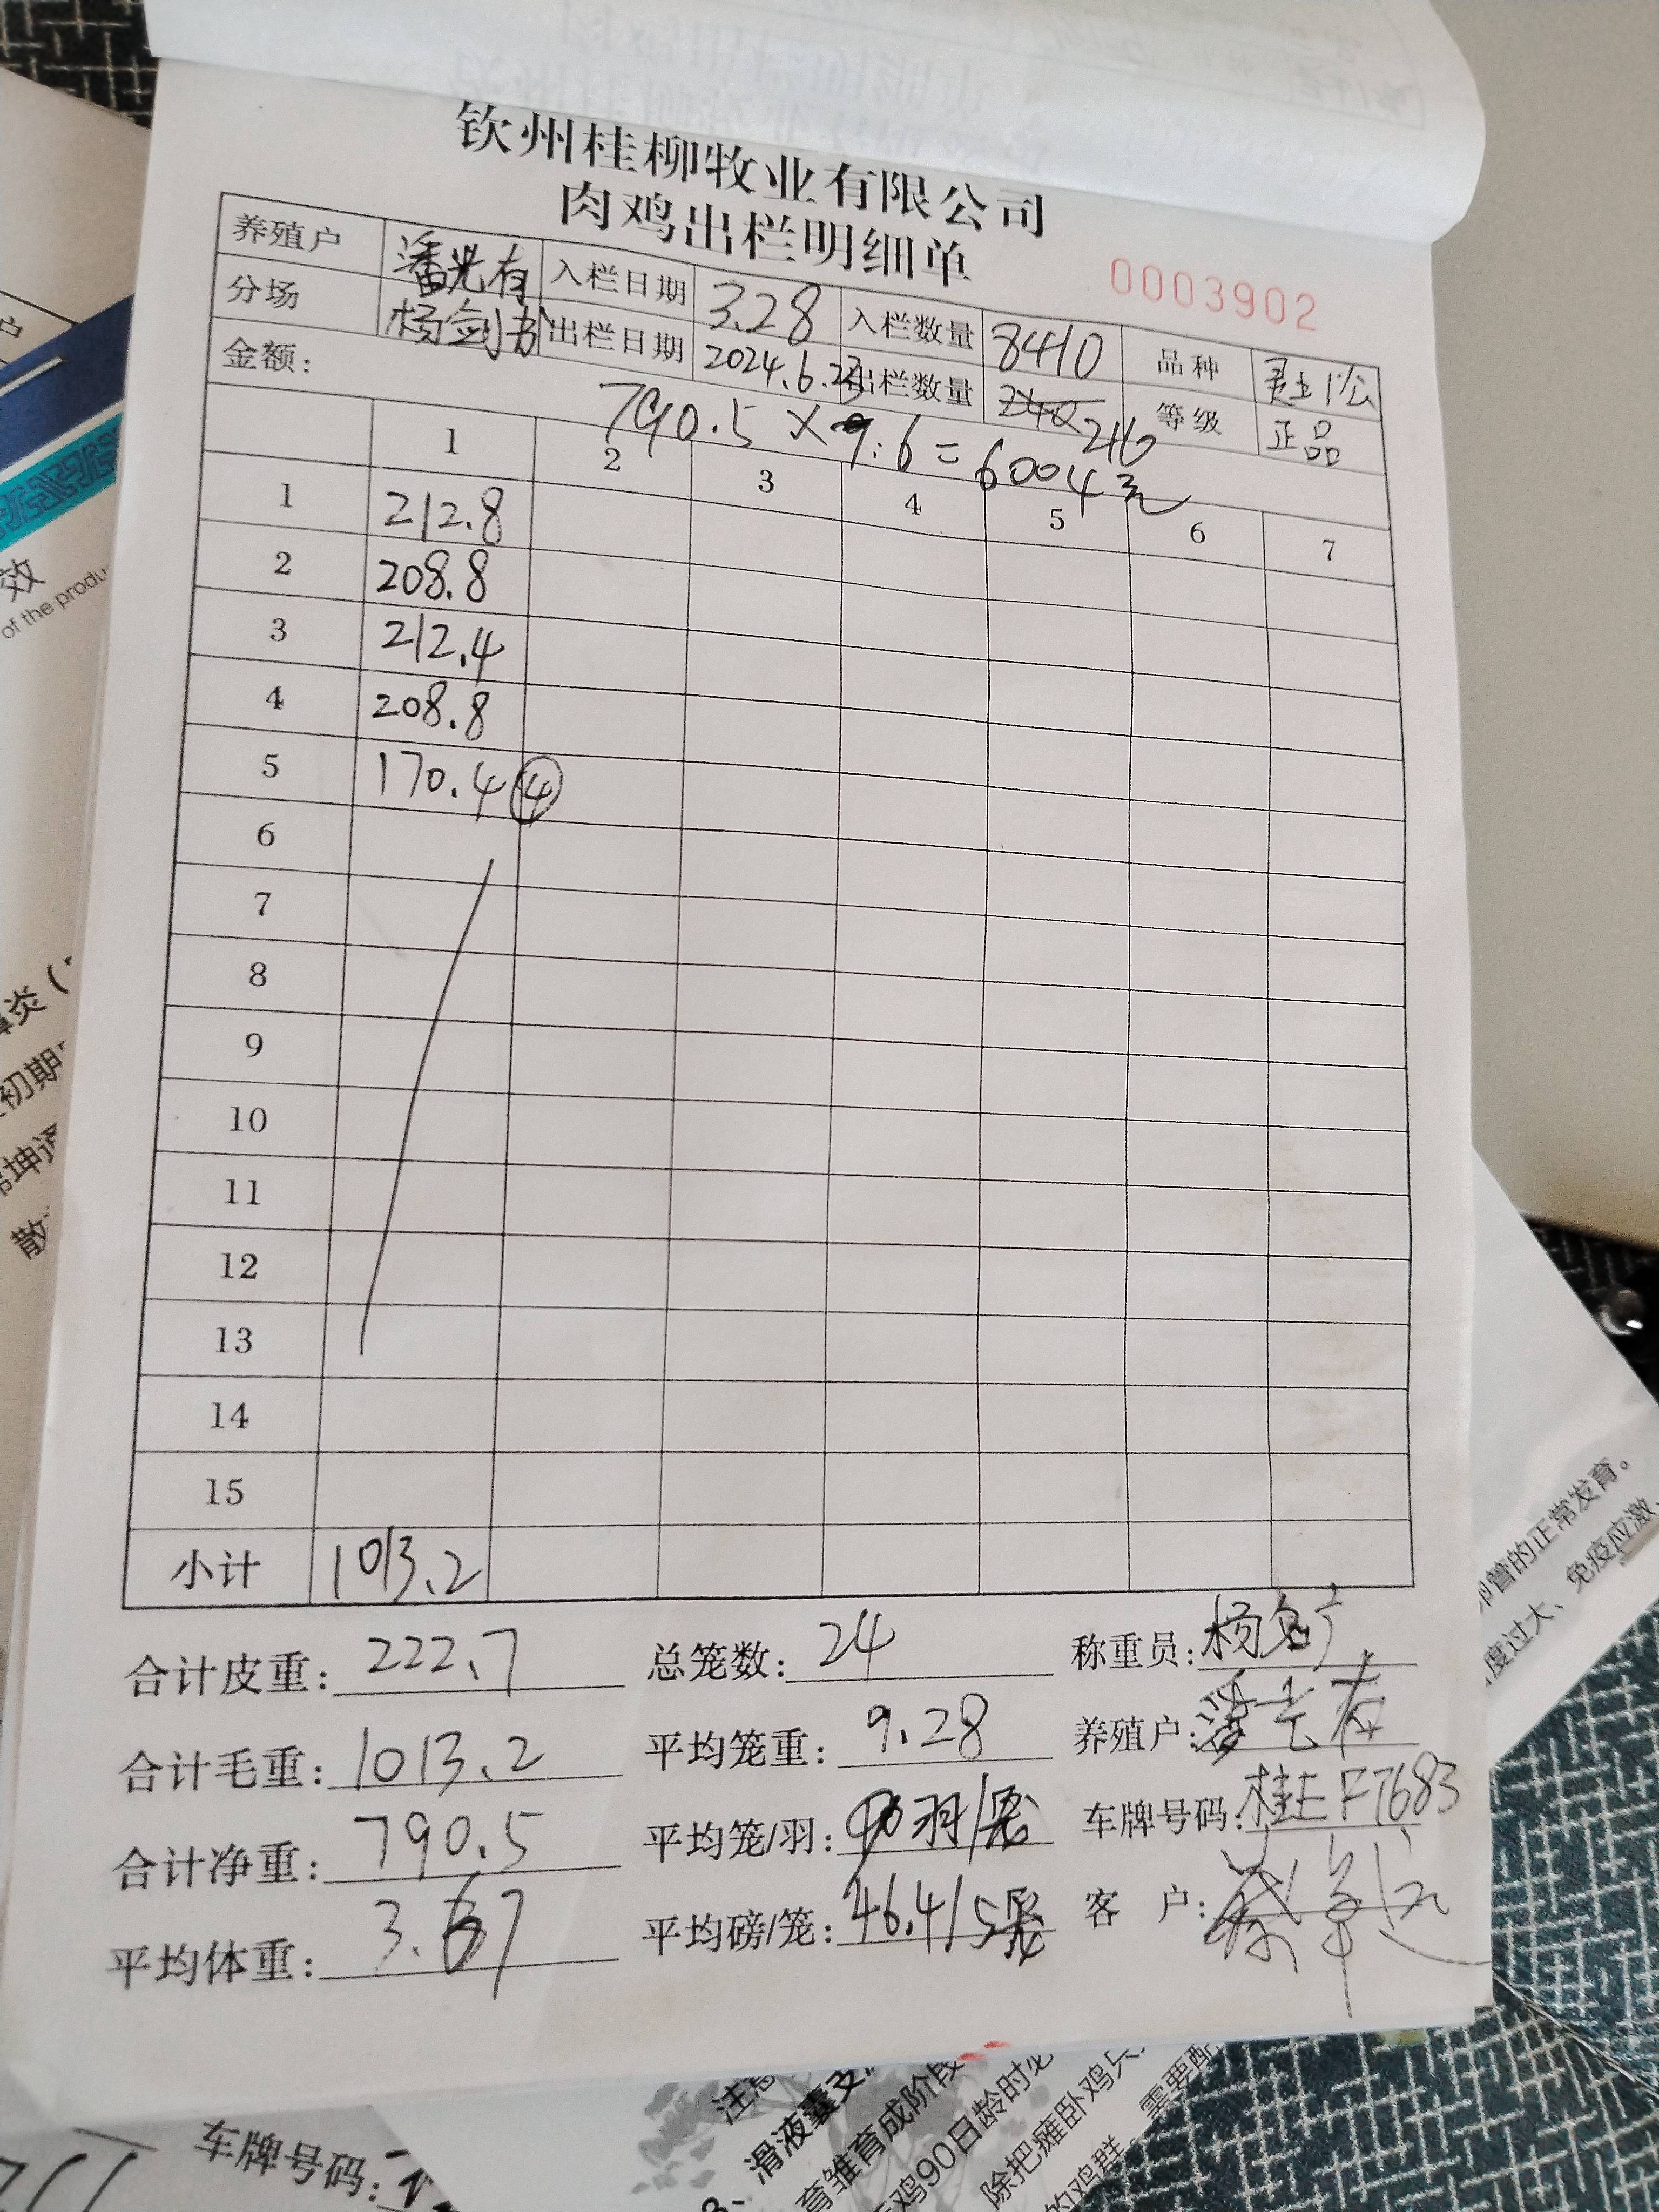 钦州桂柳牧业有限公司
肉鸡出栏明细单
0003902
养殖户 潘光有 入栏日期 3.28 入栏数量 8410 品种
分场 杨剑书 出栏日期 2024.6.23 出栏数量 240 216 等级 正品
金额: 790.5 × 9.6 = 6004元
1 2 3 4 5 6 7
1 212.8
2 208.8
3 212.4
4 208.8
5 170.4 ④
6
7
8
9
10
11
12
13
14
15
小计 1013.2
合计皮重: 222.7 总笼数: 24 称重员:
合计毛重: 1013.2 平均笼重: 9.28 养殖户: 潘光有
合计净重: 790.5 平均笼/羽: 羽/笼 车牌号码: 桂E F7683
平均体重: 3.67 平均磅/笼: 46.4/5 客 户:
效
of the produ
鼻炎（
初期
散
卵管的正常发育。
度过大、免疫应激、
注意
滑液囊支
育雏育成阶段
鸡90日龄时必
除把瘫卧鸡只
的鸡群
需要配
车牌号码: